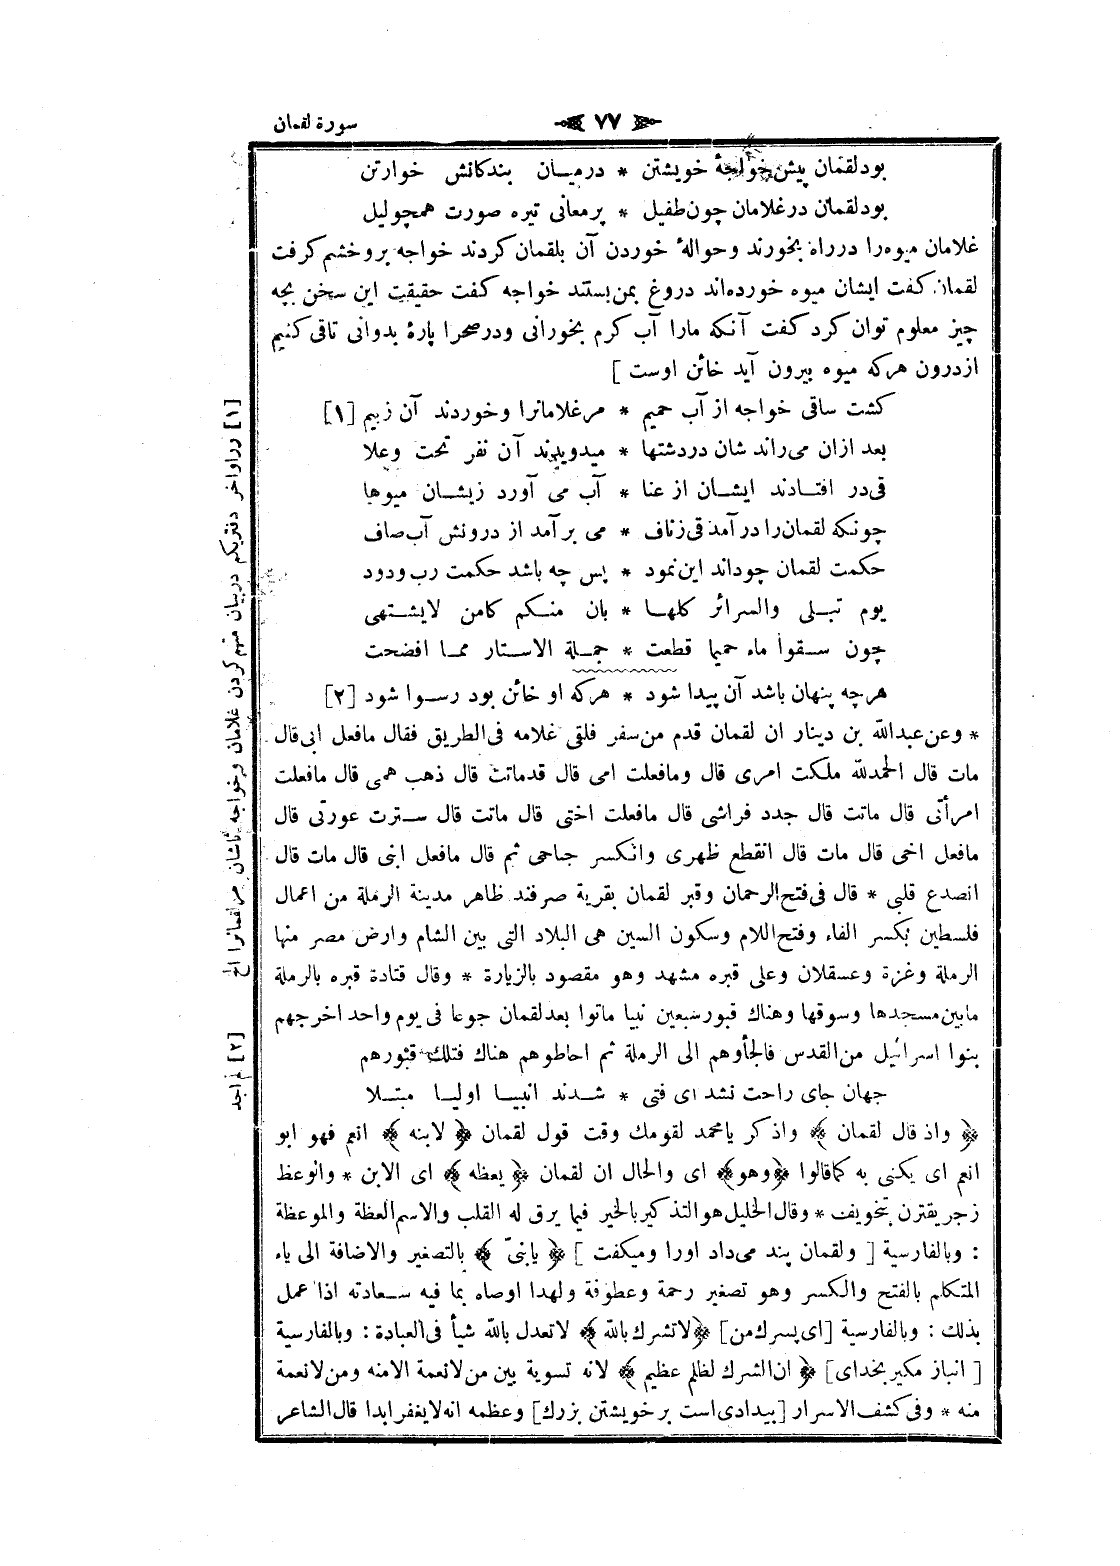 سورة لقمان
﴿ ٧٧ ﴾
بود لقمان پیش خواجهٔ خویشتن * درمیـان بندکانش خوارتن
بود لقمان درغلامان چون طفیل * پرمعانی تیره صورت همچولیل
غلامان میوه را درراه بخورند وحوالهٔ خوردن آن بلقمان کردند خواجه بروخشم کرفت
لقمان کفت ایشان میوه خورده‌اند دروغ بمن بستند خواجه کفت حقیقت این سخن بچه
چیز معلوم توان کرد کفت آنکه مارا آب کرم بخورانی ودرصحرا پارهٔ بدوانی تاقی کنیم
ازدرون هرکه میوه بیرون آید خائن اوست ]
کشت ساقی خواجه از آب حمیم * مرغلامانرا وخوردند آن زبیم [١]
بعد ازان می‌راند شان دردشتها * میدویدند آن نفر تحت وعلا
قی در افتـادند ایشـان از عنا * آب می آورد زیشـان میوها
چونکه لقمان را درآمد قی زناف * می برآمد از درونش آب صاف
حکمت لقمان چوداند این نمود * پس چه باشد حکمت رب ودود
یوم تبـلى والسرائر کلهـا * بان منـکم کامن لایشـتهى
چون سـقوا ماء حمیما قطعت * جمـلة الاسـتار ممـا افضحت
هرچه پنهان باشد آن پیدا شود * هرکه او خائن بود رسـوا شود [٢]
* وعن عبدالله بن دینار ان لقمان قدم من سفر فلقى غلامه فى الطریق فقال مافعل ابى قال
مات قال الحمدلله ملکت امرى قال ومافعلت امى قال قدماتت قال ذهب همى قال مافعلت
امرأتى قال ماتت قال جدد فراشى قال مافعلت اختى قال ماتت قال سـترت عورتى قال
مافعل اخى قال مات قال انقطع ظهرى وانکسر جناحى ثم قال مافعل ابنى قال مات قال
انصدع قلبى * قال فى فتح الرحمان وقبر لقمان بقریة صرفند ظاهر مدینة الرملة من اعمال
فلسطین بکسر الفاء وفتح اللام وسکون السین هى البلاد التى بین الشام وارض مصر منها
الرملة وغزة وعسقلان وعلى قبره مشهد وهو مقصود بالزیارة * وقال قتادة قبره بالرملة
مابین مسجدها وسوقها وهناك قبور سبعین نبیا ماتوا بعد لقمان جوعا فى یوم واحد اخرجهم
بنوا اسرائیل من القدس فالجأوهم الى الرملة ثم احاطوهم هناك فتلك قبورهم
جهان جاى راحت نشد اى فتى * شـدند انبیـا اولیـا مبتـلا
﴿ واذ قال لقمان ﴾ واذکر یامحمد لقومك وقت قول لقمان ﴿ لابنه ﴾ انعم فهو ابو
انعم اى یکنى به کماقالوا ﴿ وهو ﴾ اى والحال ان لقمان ﴿ یعظه ﴾ اى الابن * والوعظ
زجر یقترن بتخویف * وقال الخلیل هوالتذکیر بالخیر فیما یرق له القلب والاسم العظة والموعظة
: وبالفارسیة [ ولقمان پند می‌داد اورا ومیکفت ] ﴿ یابنىّ ﴾ بالتصغیر والاضافة الى یاء
المتکلم بالفتح والکسر وهو تصغیر رحمة وعطوفة ولهدا اوصاه بما فیه سـعادته اذا عمل
بذلك : وبالفارسیة [اى پسرك من] ﴿ لاتشرك بالله ﴾ لاتعدل بالله شیأ فى العبادة : وبالفارسیة
[ انباز مکیر بخداى] ﴿ ان الشرك لظلم عظیم ﴾ لانه تسویة بین من لانعمة الامنه ومن لانعمة
منه * وفى کشف الاسرار [بیدادى است بر خویشتن بزرك] وعظمه انه لایغفر ابدا قال الشاعر
[١] دراواخر دفتریکم دربیان متهم کردن غلامان وخواجه تاشان مرلقمانرا الخ
[٢] لم اجد